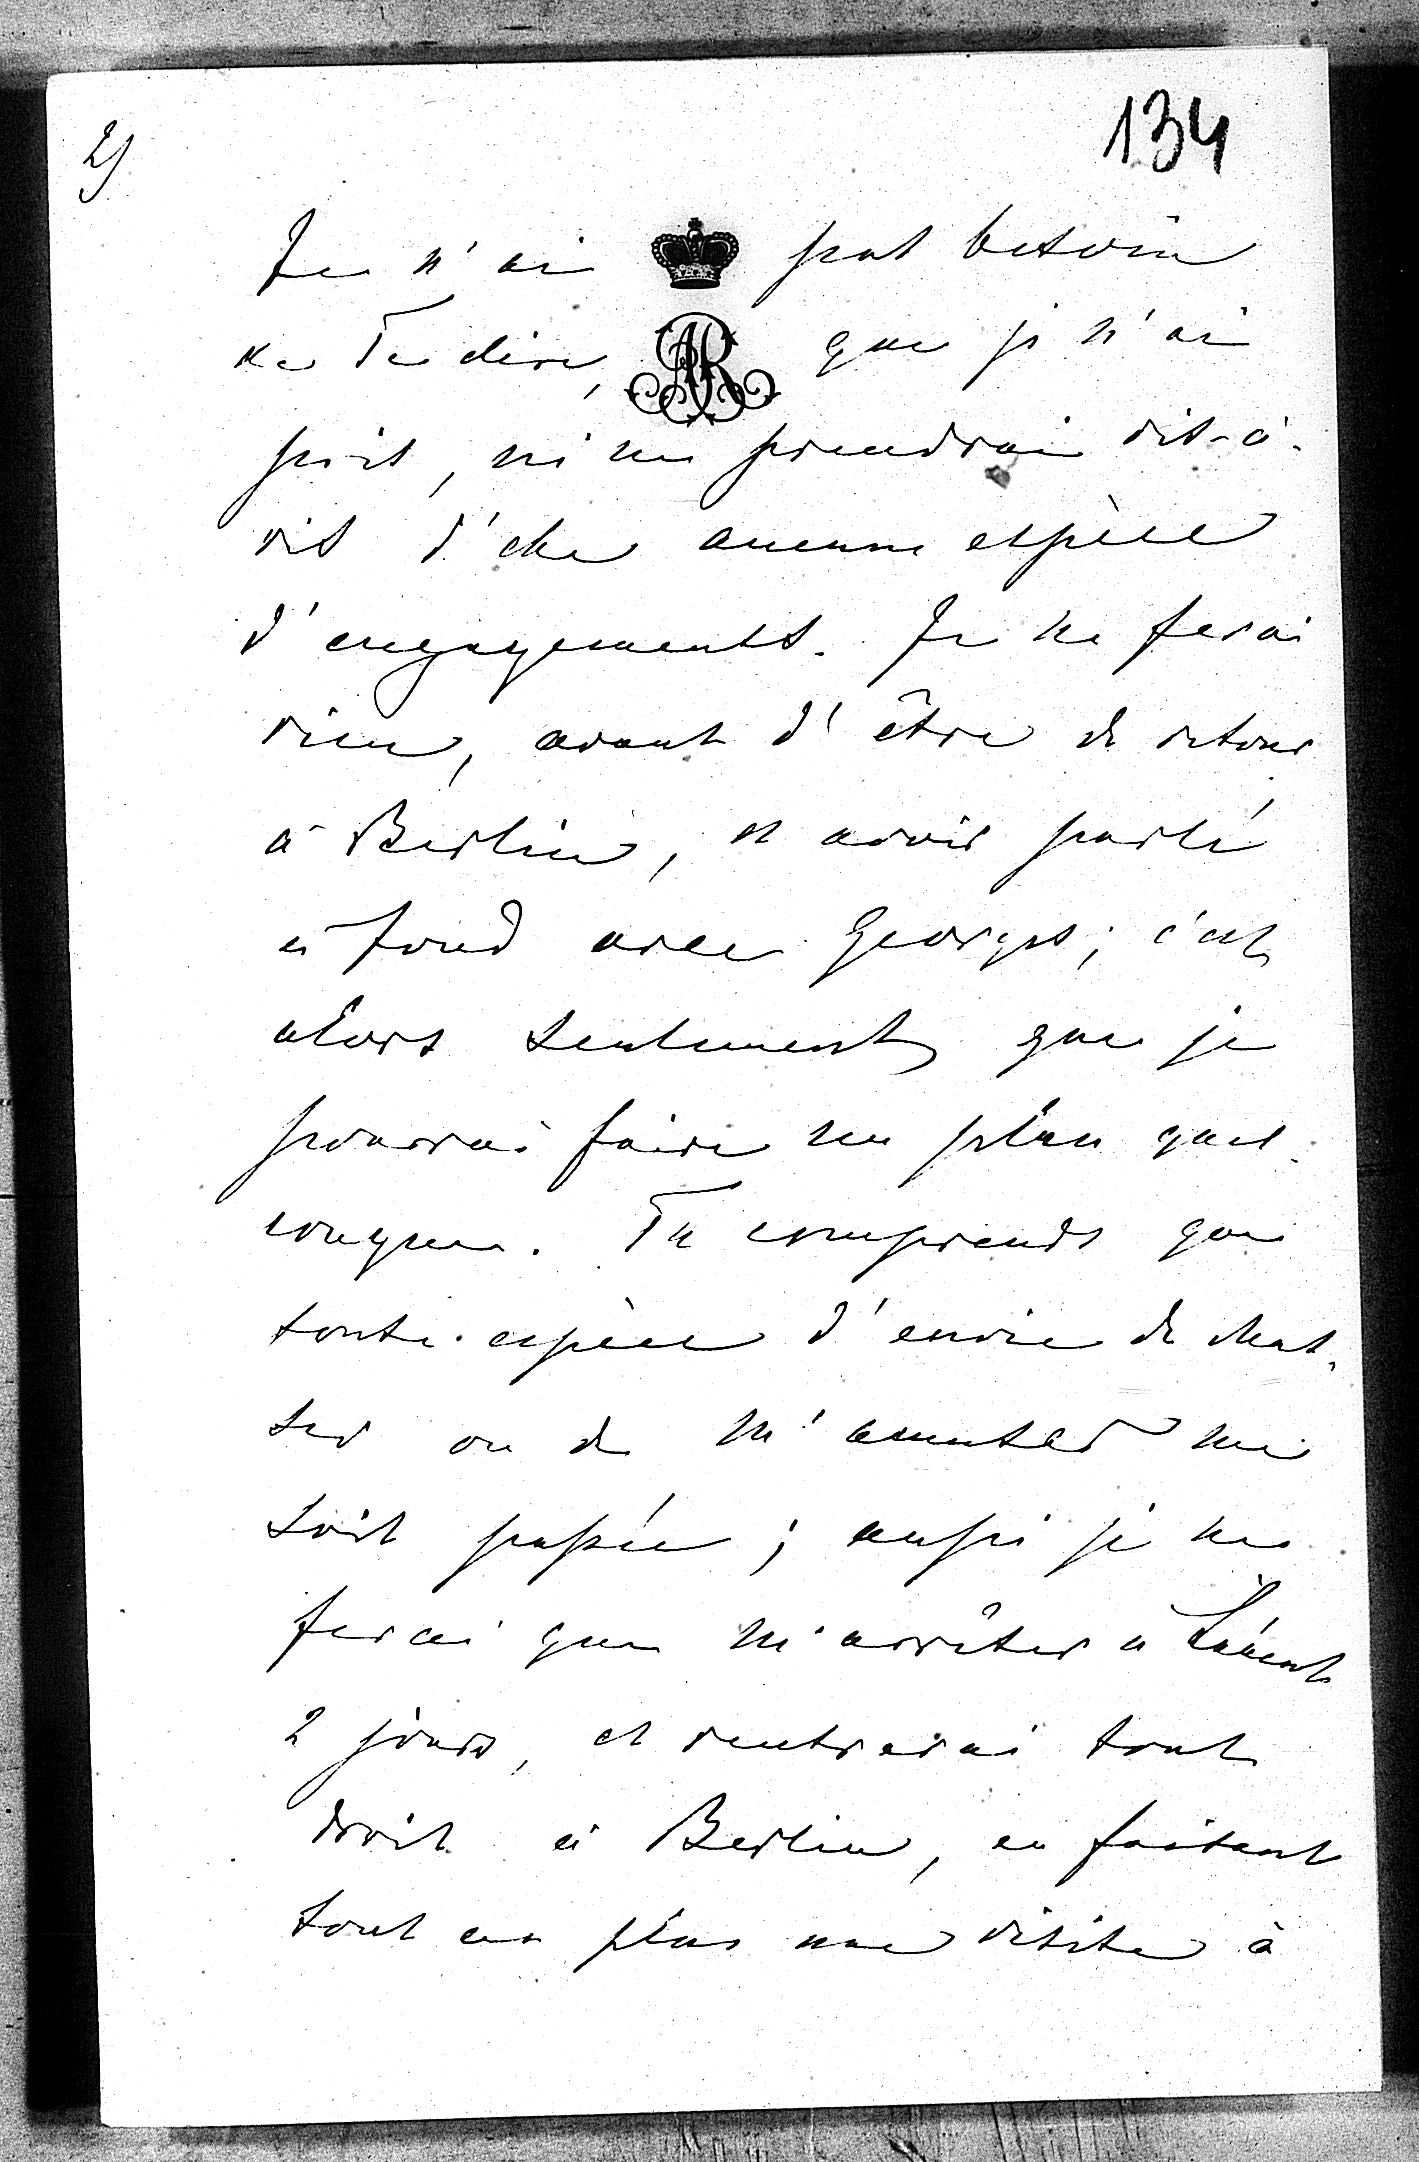 2)
134
Je n'ai pas besoin
de Te dire, que je n'ai
pris, ni ne prendrai vis-à-
vis d'elle aucune espèce
d'engagements. Je ne ferai
rien, avant d'être de retour
à Berlin, et avoir parlé
à fond avec Georges; c'est
alors seulement que je
pourrai faire un plan quel-
conque. Tu comprends que
toute espèce d'envie de chas-
ser ou de m'amuser me
soit passée; aussi je ne
ferai que m'arrêter à
2 jours, et rentrerai tout
droit à Berlin, en faisant
tout au plus une visite à